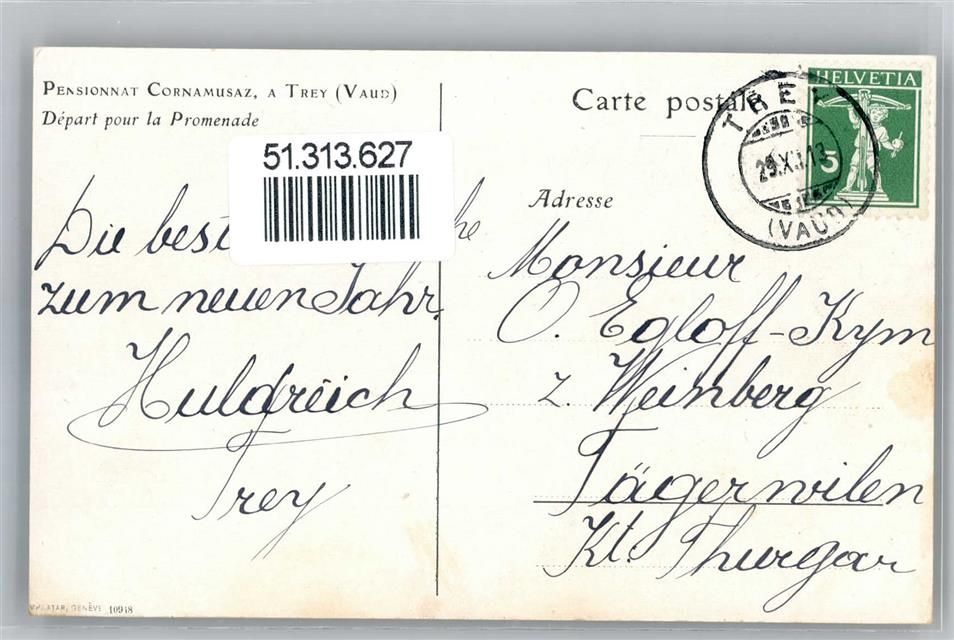 PENSIONNAT CORNAMUSAZ, A TREY (VAUD)
Départ pour la Promenade
Carte postale
HELVETIA
5
TREY
29.XII.13
(VAUD)
51.313.627
Adresse
Die best
zum neuen Jahr.
Huldreich
Trey
Monsieur
O. Egloff-Kym
z. Weinberg
Tägerwilen
Kt. Thurgau
GENÈVE 10948